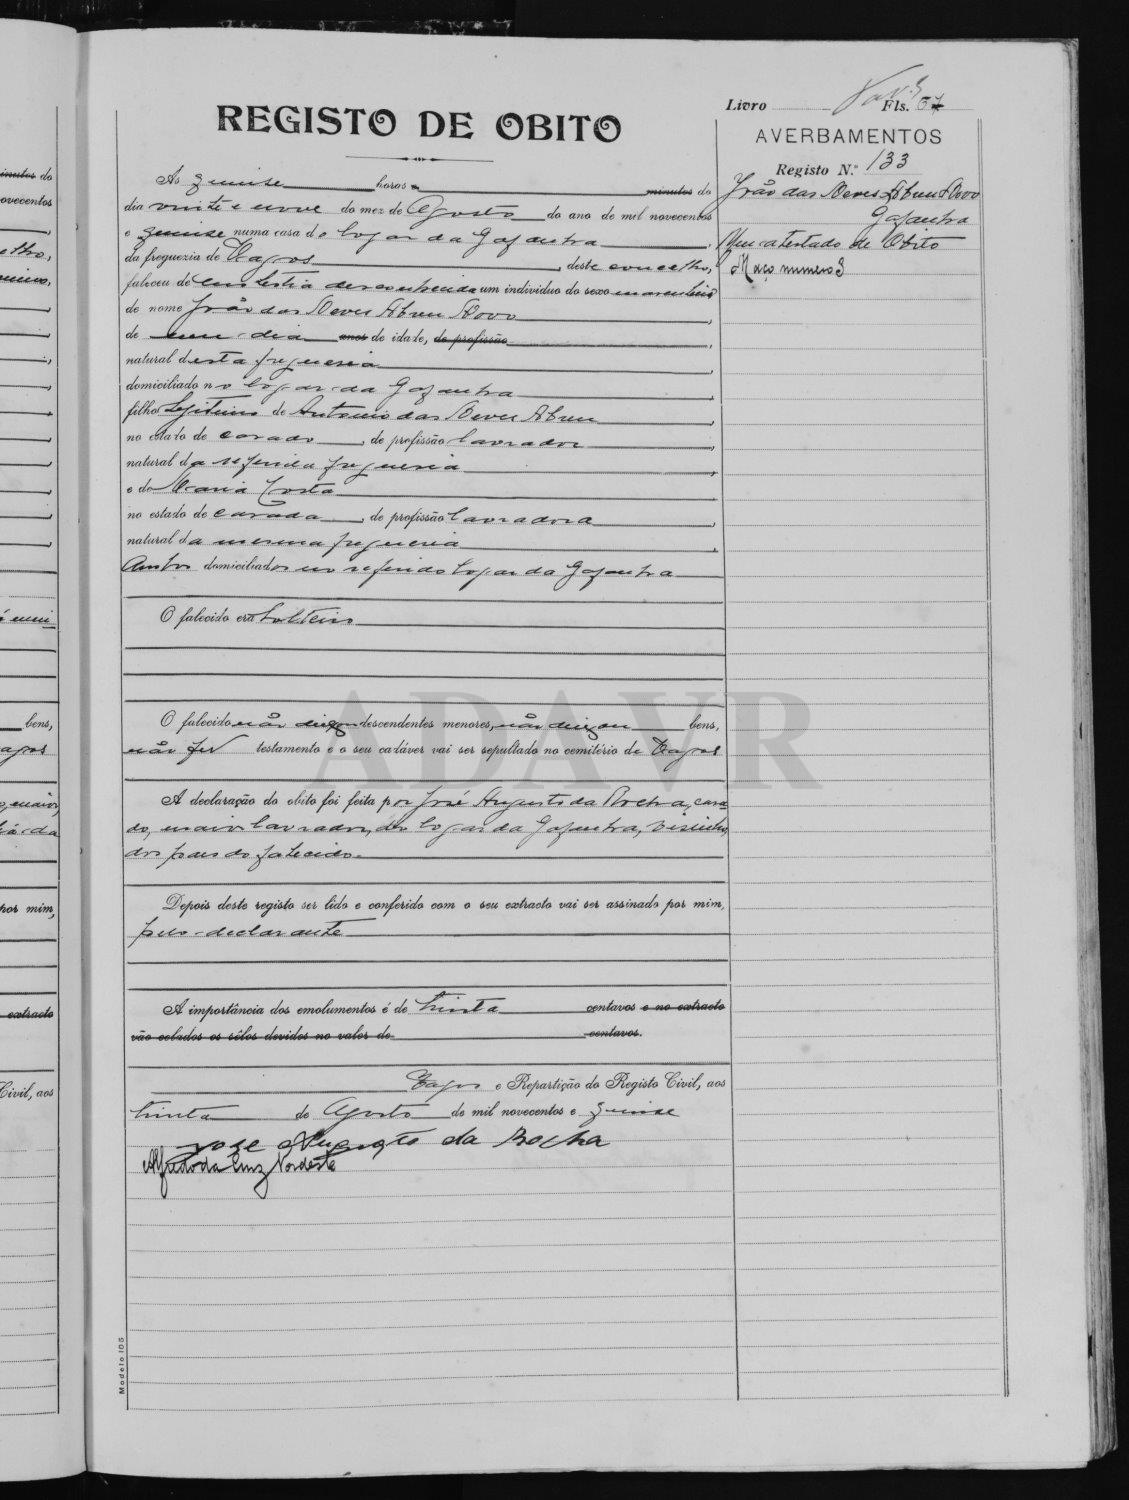 Livro Fls. 67
REGISTO DE OBITO
AVERBAMENTOS
Registo N.º 133
João das Neves Abreu Novo
Gafanha
Um atestado de Obito
Maço numero 3
As quinse horas e minutos do
dia vinte e nove do mez de Agosto do ano de mil novecentos
e quinse numa casa do logar da Gafanha,
da freguezia de Vagos, deste concelho,
faleceu de molestia desconhecida um individuo do sexo masculino
de nome João das Neves Abreu Novo,
de um dia anos de idade, de profissão,
natural desta freguesia,
domiciliado no logar da Gafanha,
filho legitimo de Antonio das Neves Abreu,
no estado de casado, de profissão lavrador,
natural da referida freguesia,
e de Maria Costa
no estado de casada, de profissão lavradora,
natural da mesma freguesia,
Ambos domiciliados no referido logar da Gafanha
O falecido era solteiro
O falecido não descendentes menores, não bens,
não fez testamento e o seu cadáver vai ser sepultado no cemitério de Vagos
A declaração do obito foi feita por José Augusto da Rocha, casa
do, maior lavrador, do logar da Gafanha, visinho
dos paes do falecido.
Depois deste registo ser lido e conferido com o seu extracto vai ser assinado por mim,
pelo declarante
A importância dos emolumentos é de trinta centavos e no extracto
vão colados os sêlos devidos no valor de centavos.
Vagos e Repartição do Registo Civil, aos
trinta de Agosto de mil novecentos e quinse
José Augusto da Rocha
Alfredo da Cruz Nordeste
Modelo 105
ADAVR